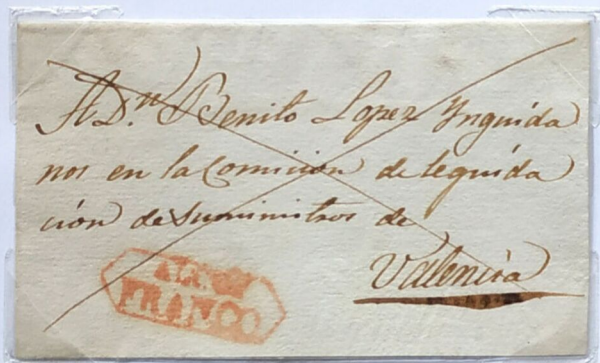 A Dn. Benito Lopez Ynguida
nos en la Comicion de lequida
cion de suminitros de
Valencia
FRANCO